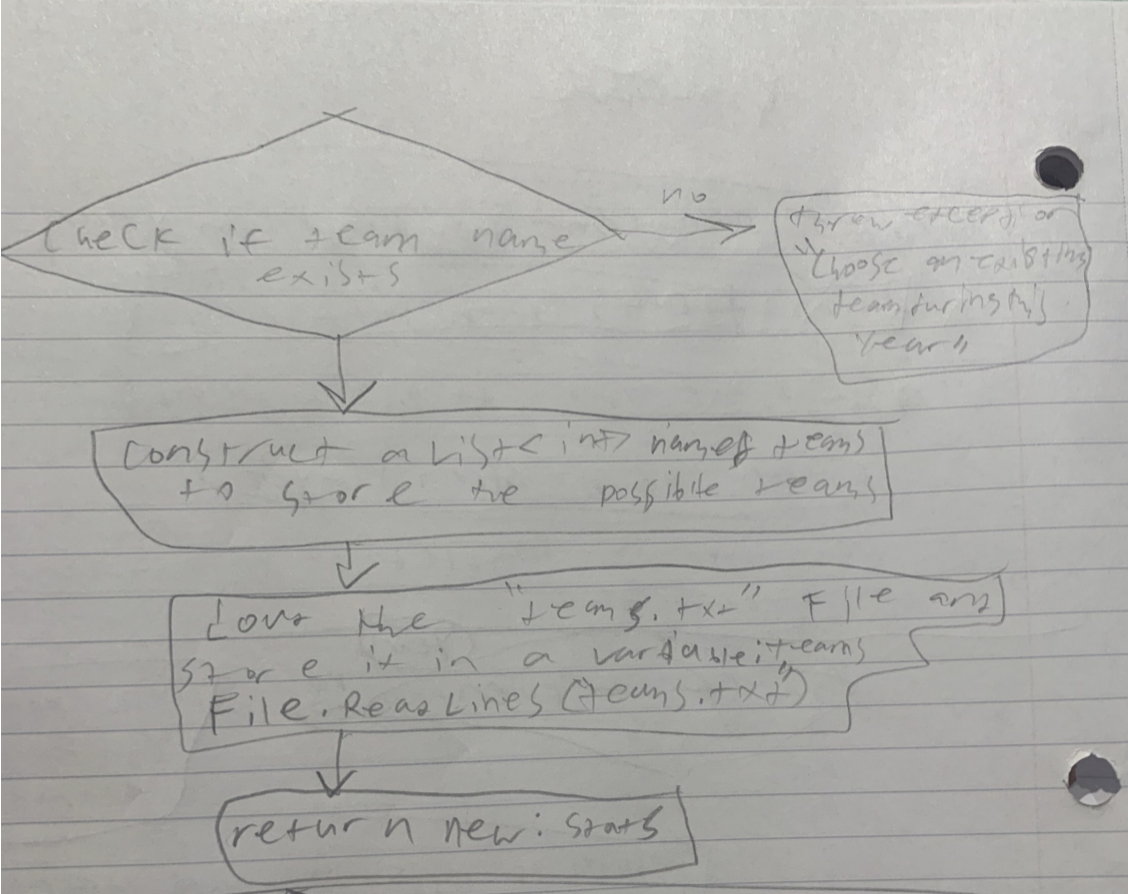 Check if team name
exists
no
throw exception
"Choose an existing
team during this
year"
Construct a List<int> named teams
to store the possible teams
Load the "teams.txt" File and
store it in a variable: teams
File.ReadLines(teams.txt")
return new: stats